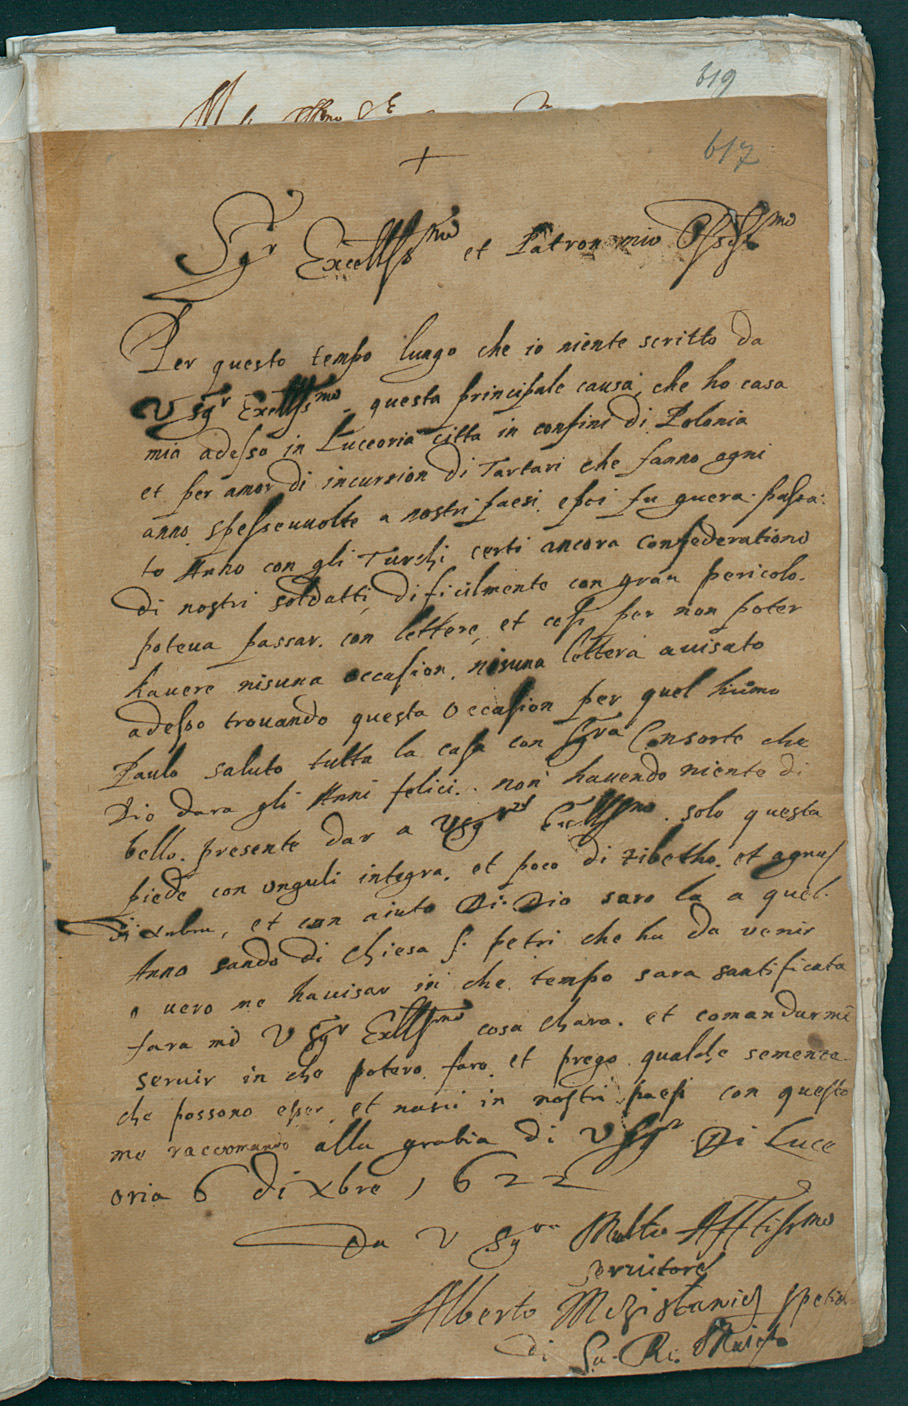 619
617
+
Sgr Excellssmo et Patron mio Ossssmo
Per questo tempo lungo che io niente scritto da
V Sgr Excellssmo questa principale causa, che ho casa
mia adesso in Luceoria citta in confini di Polonia
et per amor di incursion di Tartari che fanno ogni
anno spesseuuolte a nostri paesi, essi fu guera passa:
to Anno con gli Turchi certi ancora confederationo
di nostri soldatti, dificilmente con gran pericolo.
poteua passar. con lettere, et cosi per non poter
hauere nisuna occasion. nisuna lettera auisato
adesso trouando questa occasion per quel huomo
Paulo saluto tutta la casa con Sgra Consorte che
Dio dara gli Anni felici.. non hauendo niente di
bello. presente dar a VSgra Excellssmo. solo questa
piede con unguli integra. et poco di zibetho. et agnus
di, et con aiuto Di Dio saro la a quel
Anno sando di chiesa S: petri che ha da venir
o uero me hauisar in che tempo sara santificata
fara mio V Sgr Exllssmo cosa chara. et comandarme
seruir in che potero faro et prego qualche semence
che possono esser et nasci in nostri paesi con questo
me raccomando alla grabia di V Sgra Di Luce
oria 6 di Xbre 1622
Da V Sgra Molto Afftissmo
seruitore
Alberto spetia
di Sa. Re.